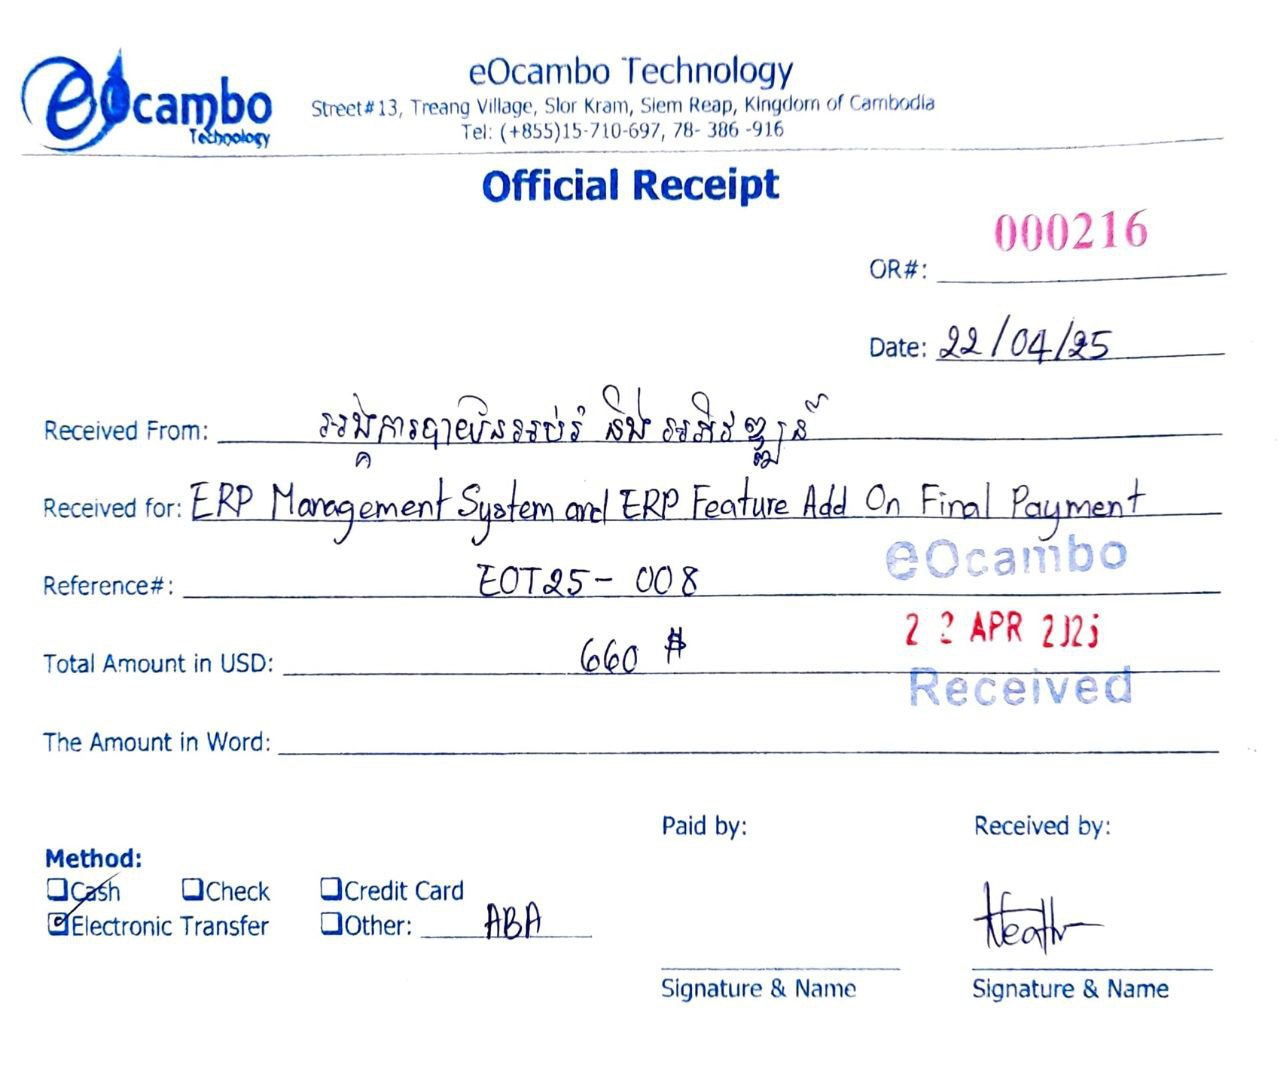 eOcambo Technology
eOcambo Technology
Street#13, Treang Village, Slor Kram, Siem Reap, Kingdom of Cambodia
Tel: (+855)15-710-697, 78- 386 -916
Official Receipt
OR#: 000216
Date: 22/04/25
Received From: អង្គការបាយ័នអប់រំ និង អភិវឌ្ឍន៍
Received for: ERP Management System and ERP Feature Add On Final Payment
Reference#: EOT25-008
eOcambo
22 APR 2025
Total Amount in USD: 660 $
Received
The Amount in Word:
Paid by:
Received by:
Method:
Cash Check Credit Card
Electronic Transfer Other: ABA
Neath
Signature & Name
Signature & Name